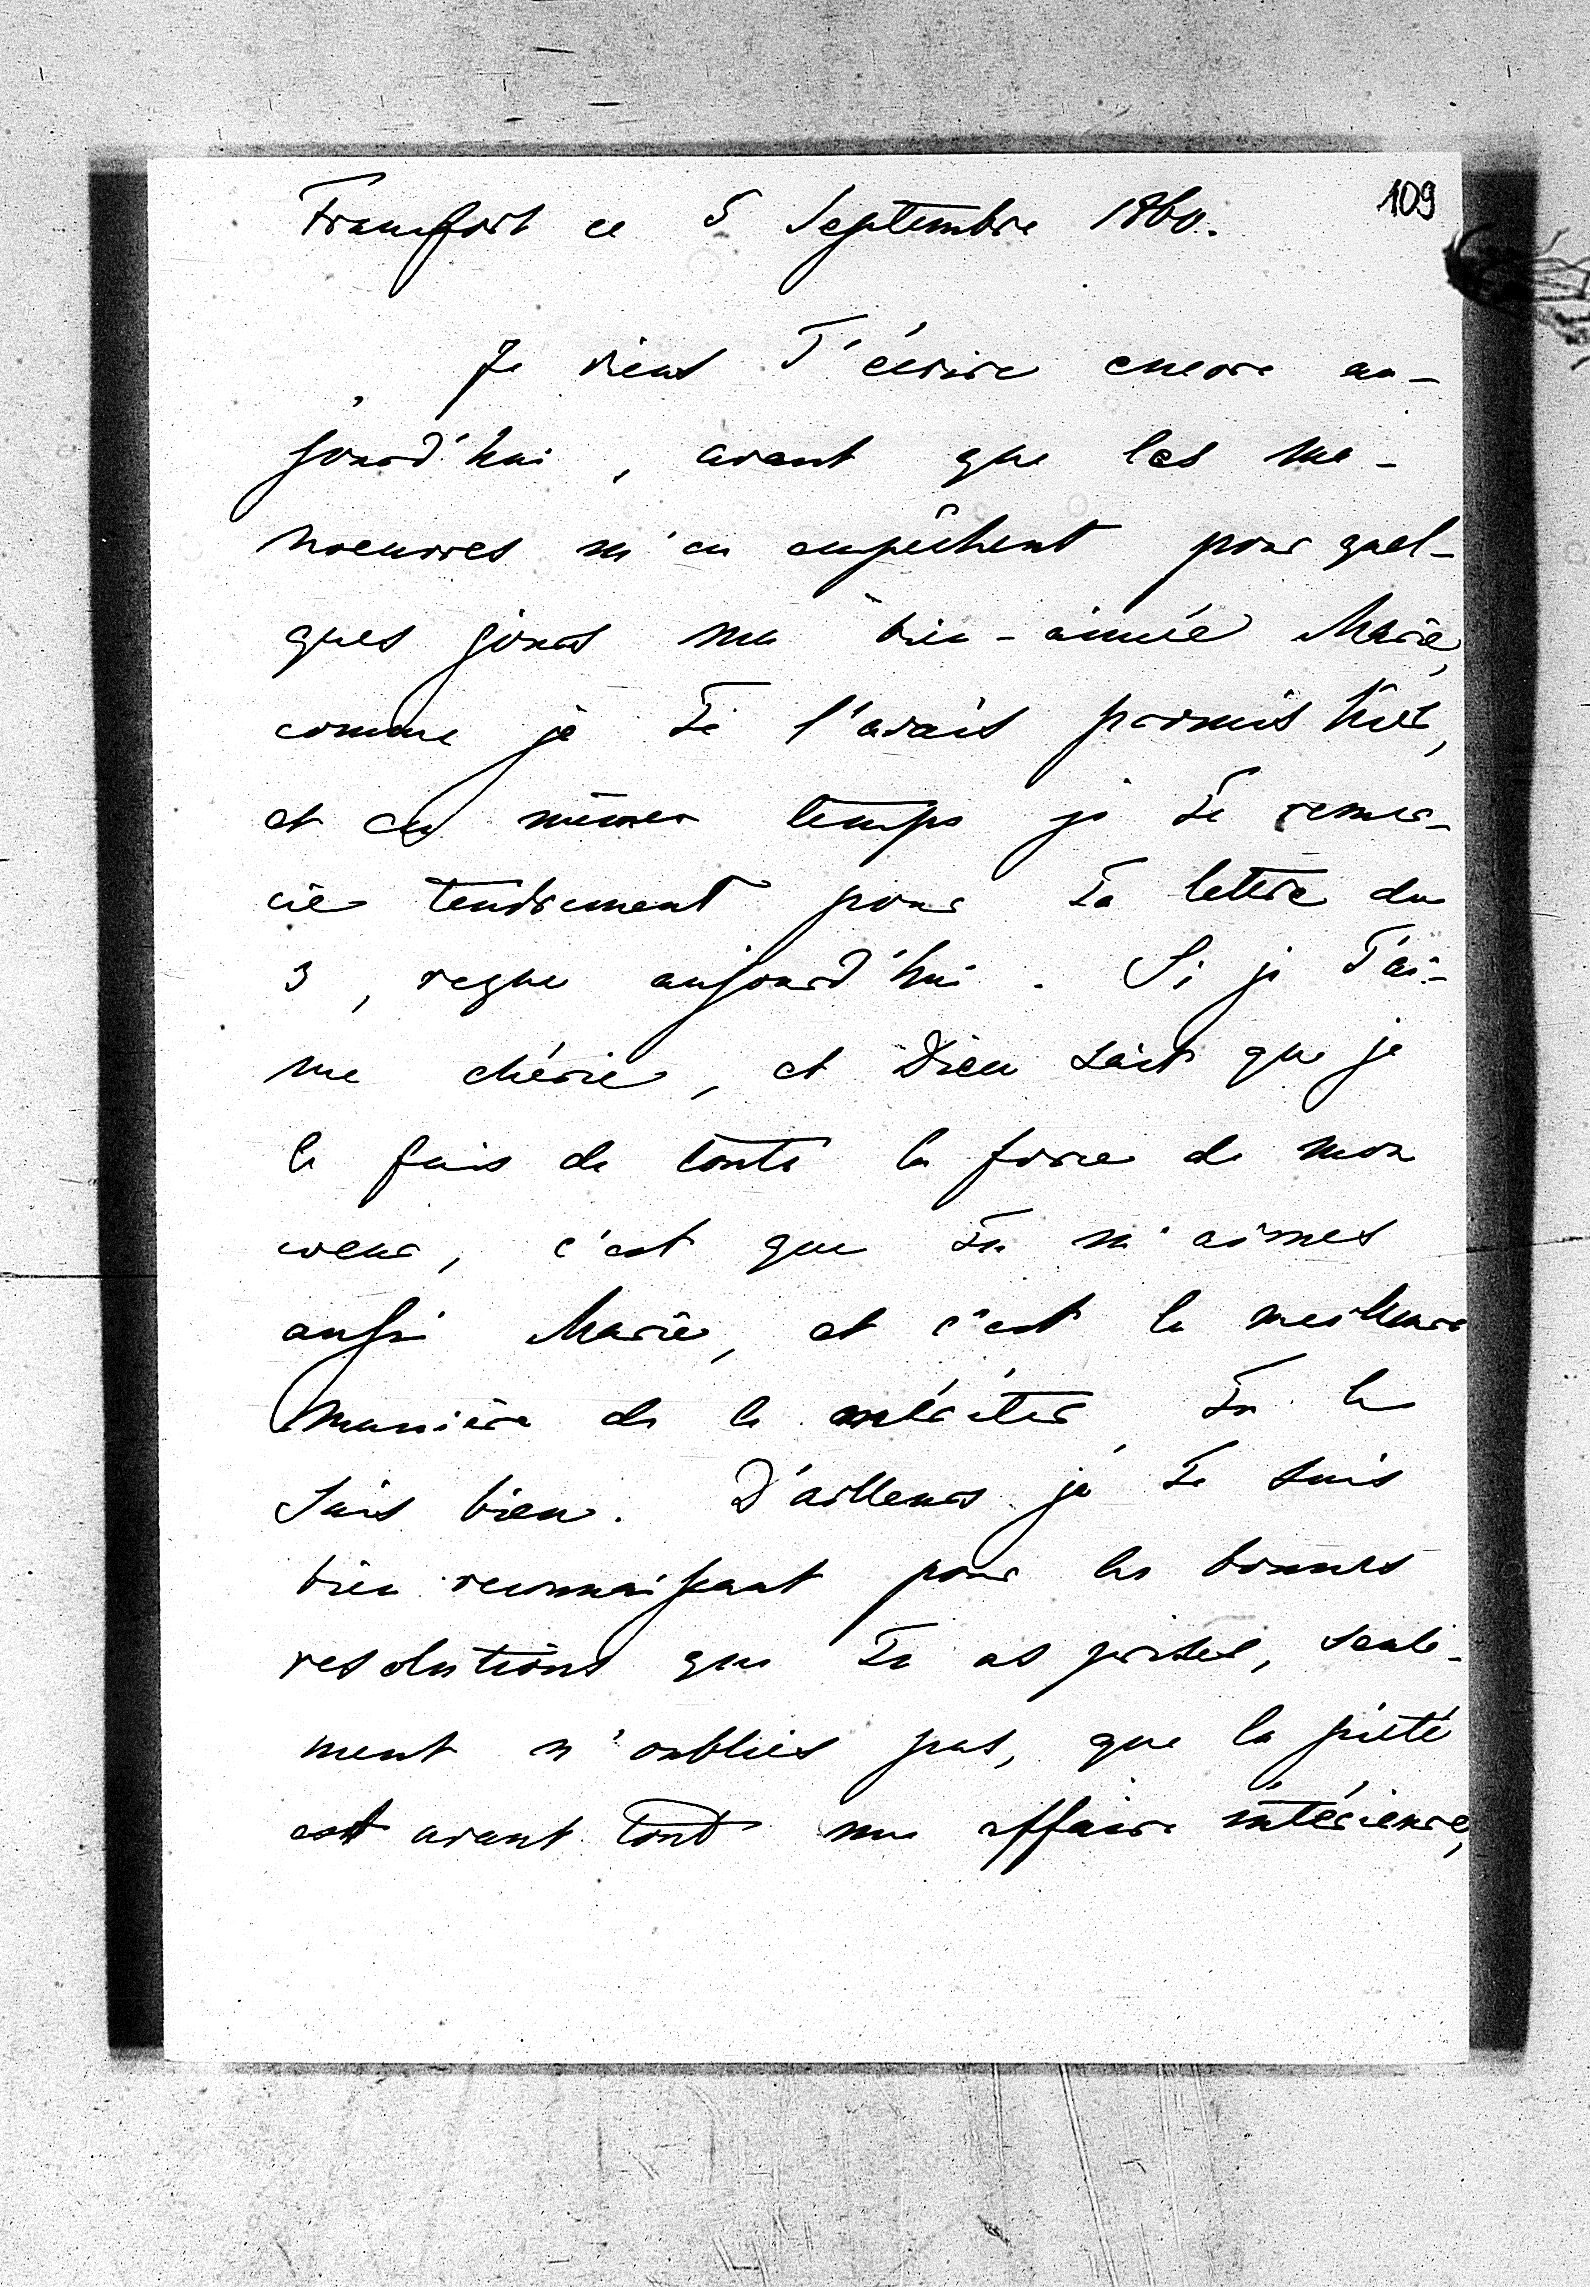 109
Francfort ce 5 Septembre 1860.
Je viens T'écrire encore au-
jourd'hui, avant que les ma-
noeuvres m'en empêchent pour quel-
ques jours ma bien-aimée Marie,
comme je Te l'avais promis hier,
et en même temps je Te remer-
cie tendrement pour Ta lettre du
3, reçue aujourd'hui. Si je T'ai-
me chérie, et Dieu sait que je
le fais de toute la force de mon
coeur, c'est que Tu m'aimes
aussi Marie, et c'est la meilleure
manière de le mériter, Tu le
sais bien. D'ailleurs je Te suis
bien reconnaissant pour les bonnes
resolutions que Tu as prises, seule-
ment n'oublies pas, que la piété
est avant tout une affaire intérieure,